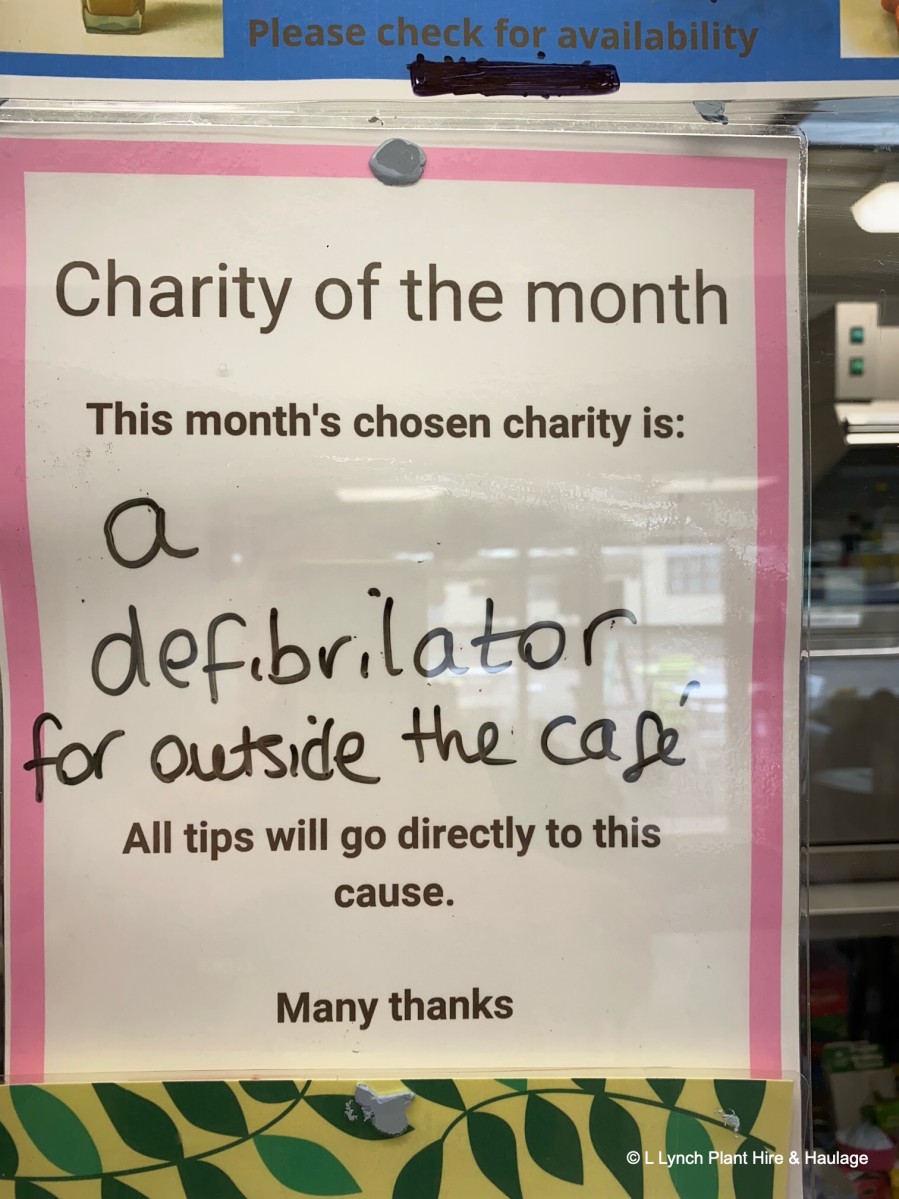 Please check for availability
Charity of the month
This month's chosen charity is:
a
defibrilator
for outside the café
All tips will go directly to this
cause.
Many thanks
© L Lynch Plant Hire & Haulage